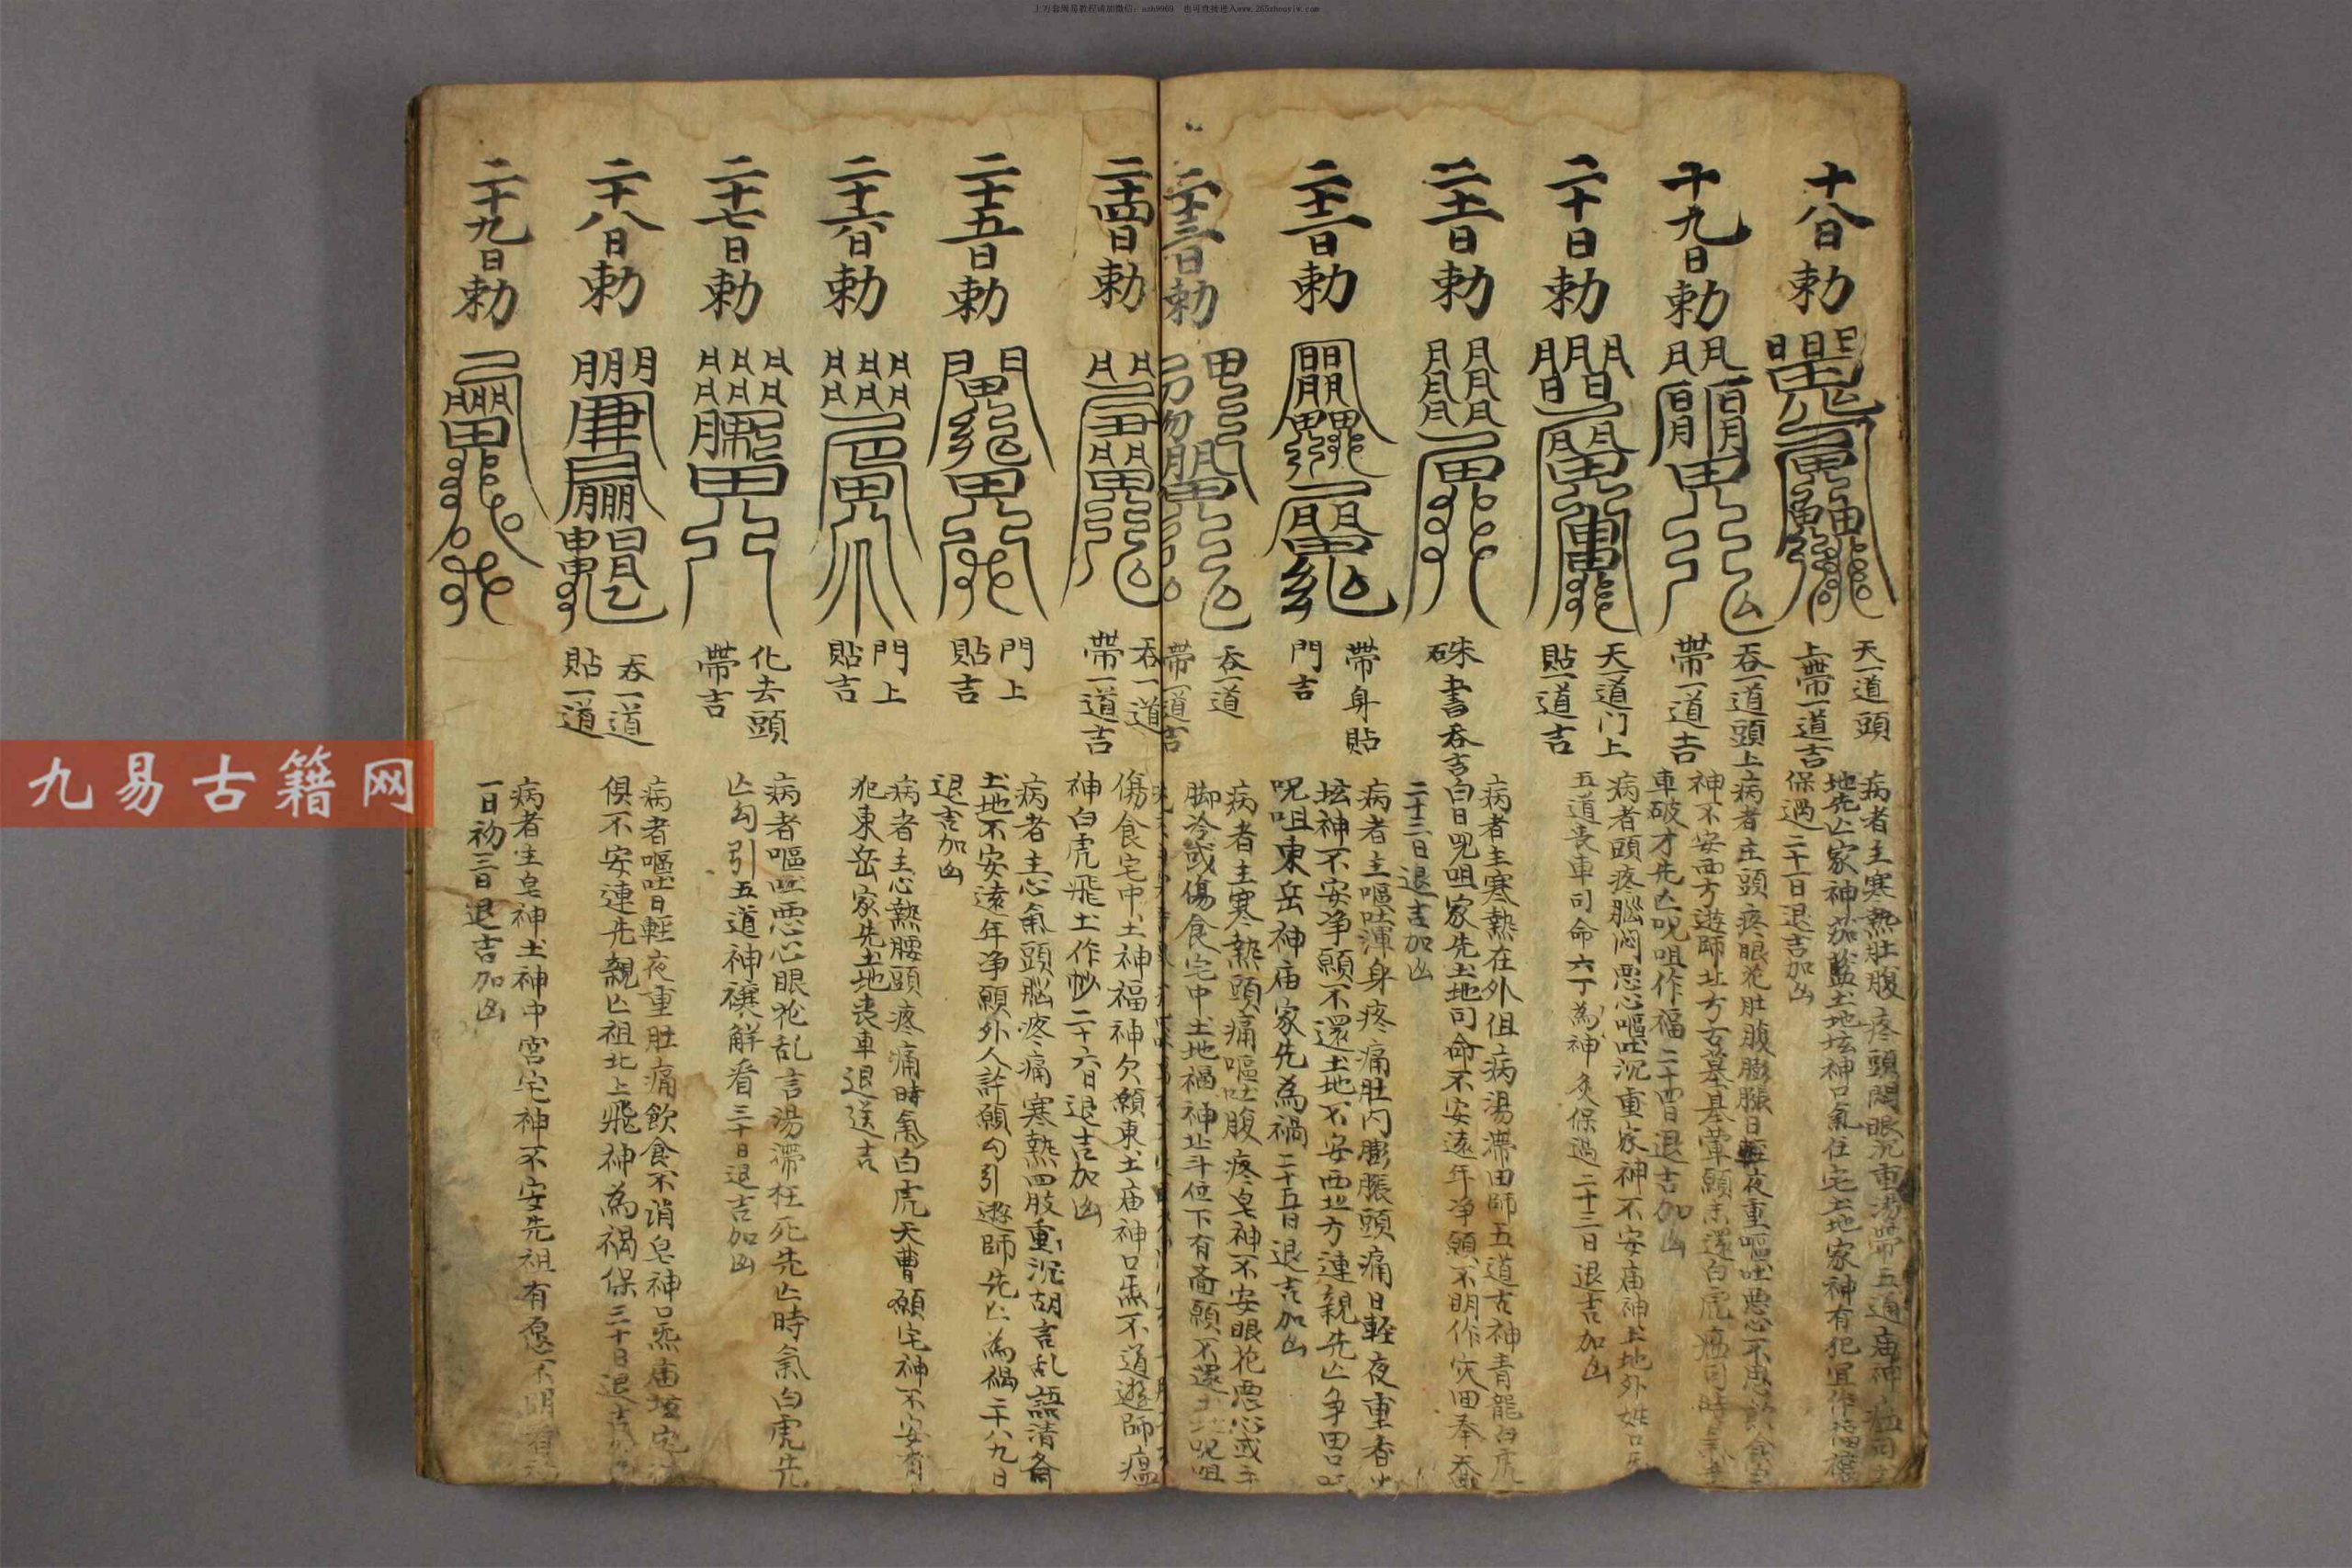 上万套周易教程请加微信：axh9969　也可直接进入www.265zhouyiw.com
九易古籍网
十八日勅
天一道頭
上帶一道吉
病者主寒熱肚腹疼頭悶眼沉重湯帶五道庙神
地先亾家神茄藍土地坛神口氣住宅土地家神有犯宜作福禳
保過二十一日退吉加凶
十九日勅
吞一道頭上
帶一道吉
病者主頭疼眼花肚腹膨脹日輕夜重嘔吐悪心不思飲食
神不安西方遊師北方古墓墓葷願未還白虎
車破才先亾呪咀作福二十四日退吉加凶
二十日勅
天一道门上
貼一道吉
病者頭疼腦闷悪心嘔吐沉重家神不安庙神土地外姓口
五道丧車司命六丁為神灸保過二十三日退吉加凶
二十一日勅
硃書吞吉
病者主寒熱在外但病湯滯田師五道古神青龍白虎
白日呪咀家先土地司命不安遠年净願不明作灾田奉
二十三日退吉加凶
二十二日勅
帶身貼
門吉
病者主嘔吐渾身疼痛肚内膨脹頭痛日輕夜重香
坛神不安净願不還土地不安西北方連親先亾争田口
呪咀東岳神庙家先為禍二十五日退吉加凶
二十三日勅
吞一道
帶一道吉
病者主寒熱頭痛嘔吐腹疼皂神不安眼花悪心或
脚冷或傷食宅中土地禍神北斗位下有斋願不還土地呪咀
二十四日勅
吞一道
帶一道吉
傷食宅中土神福神欠願東土庙神口炁不道遊師瘟
神白虎飛土作吵二十六日退吉加凶
二十五日勅
門上
貼吉
病者主心氣頭脳疼痛寒熱四肢重沉胡言乱語清斋
土地不安遠年净願外人許願勾引遊師先亾為禍二十八九日
退吉加凶
二十六日勅
門上
貼吉
病者主心熱腰頭疼痛時氣白虎天曹願宅神不安有
犯東岳家先土地丧車退送吉
二十七日勅
化去頭
帶吉
病者嘔吐悪心眼花乱言湯滯枉死先亾時氣白虎先
亾勾引五道神禳解看三十日退吉加凶
二十八日勅
吞一道
貼一道
病者嘔吐日輕夜重肚痛飲食不消皂神口炁庙坛宅
俱不安連先親亾祖北上飛神為禍保三十日退吉
二十九日勅
病者主皂神土神中宫宅神不安先祖有愿不明有
一日初三日退吉加凶